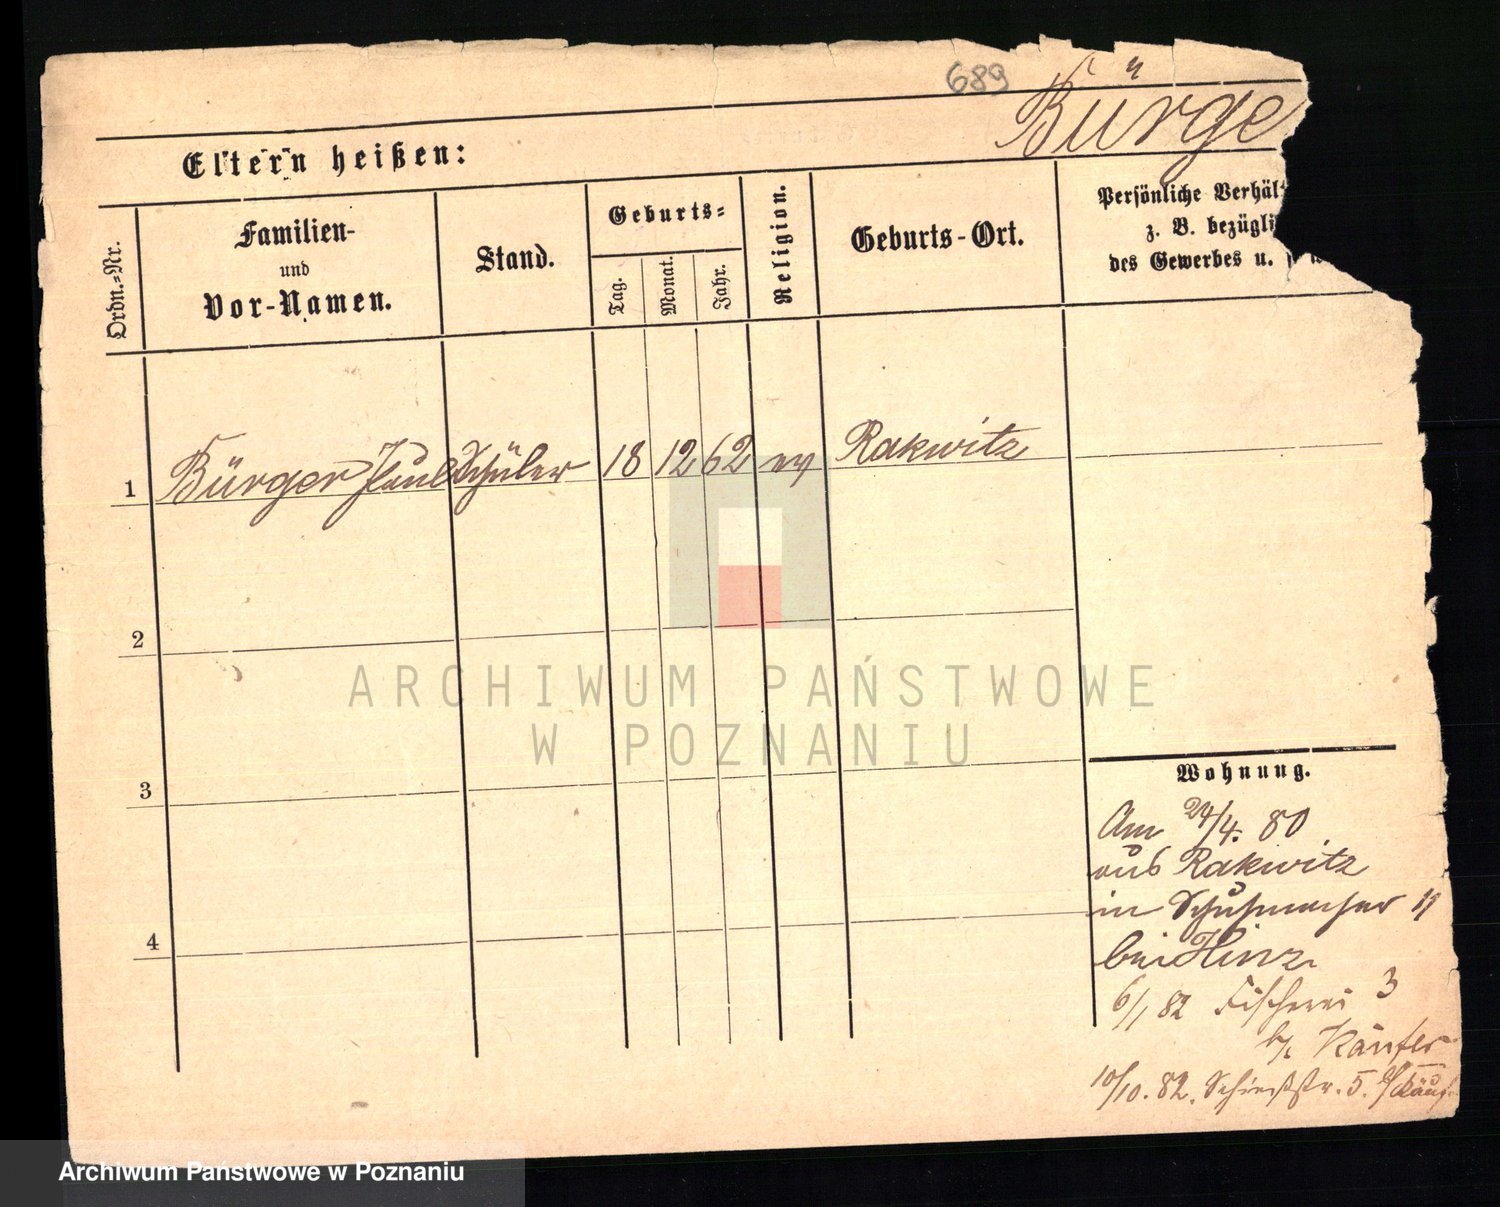 689
Bürge
Eltern heißen:
Ordn.-Nr.
Familien-
und
Vor-Namen.
Stand.
Geburts-
Tag.
Monat.
Jahr.
Religion.
Geburts-Ort.
Persönliche Verhäl
z. B. bezügli
des Gewerbes u.
1 Bürger Paul Schüler 18 12 62 ev Rakwitz
2
3
4
ARCHIWUM PAŃSTWOWE
W POZNANIU
Wohnung.
Am 24/4. 80
aus Rakwitz
in Schuhmacher 11
bei Hinz
6/1 82 Fischerei 3
b/ Käufer
10/10. 82. Schießstr. 5. b/ Käuf
Archiwum Państwowe w Poznaniu